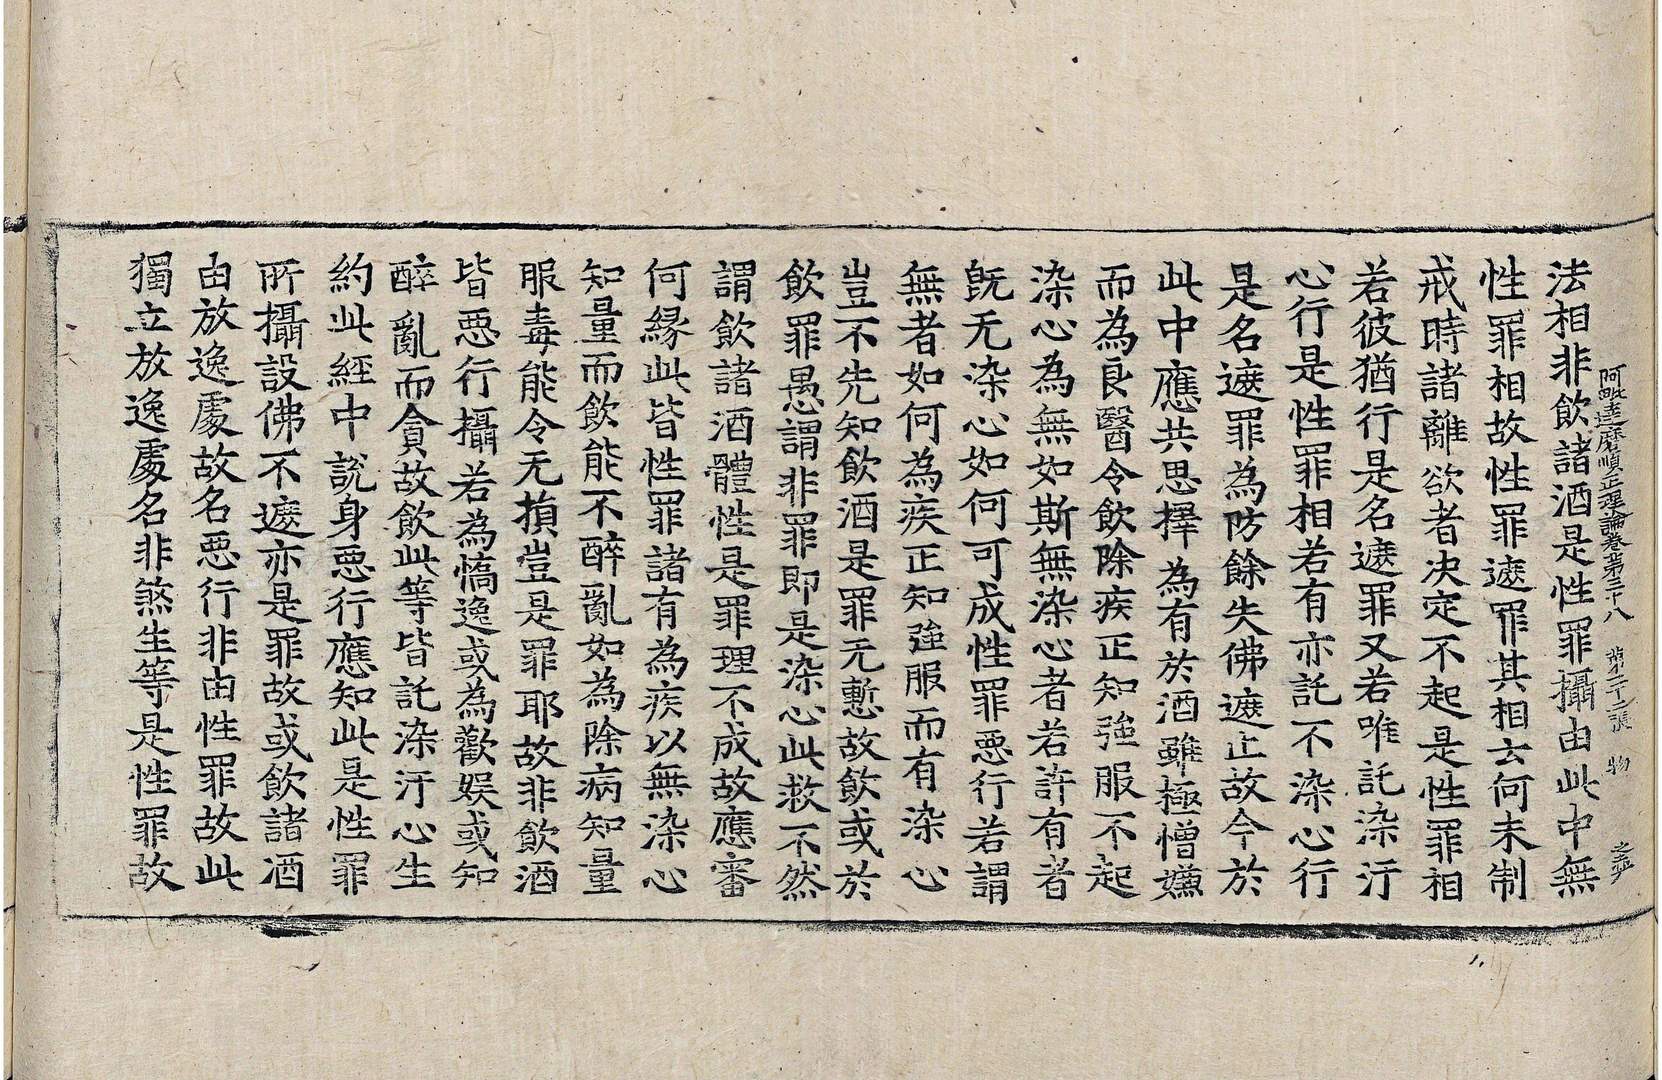 阿毗達磨順正理論卷第三十八 第二十二張 物
法相非飲諸酒是性罪攝由此中無
性罪相故性罪遮罪其相云何未制
戒時諸離欲者決定不起是性罪相
若彼猶行是名遮罪又若唯託染汙
心行是性罪相若有亦託不染心行
是名遮罪為防餘失佛遮止故今於
此中應共思擇為有於酒雖極憎嫌
而為良醫令飲除疾正知強服不起
染心為無如斯無染心者若許有者
旣无染心如何可成性罪惡行若謂
無者如何為疾正知強服而有染心
豈不先知飲酒是罪无慙故飲或於
飲罪愚謂非罪即是染心此救不然
謂飲諸酒體性是罪理不成故應審
何緣此皆性罪諸有為疾以無染心
知量而飲能不醉亂如為除病知量
服毒能令无損豈是罪耶故非飲酒
皆惡行攝若為憍逸或為歡娛或知
醉亂而貪故飲此等皆託染汙心生
約此經中說身惡行應知此是性罪
所攝設佛不遮亦是罪故或飲諸酒
由放逸處故名惡行非由性罪故此
獨立放逸處名非煞生等是性罪故